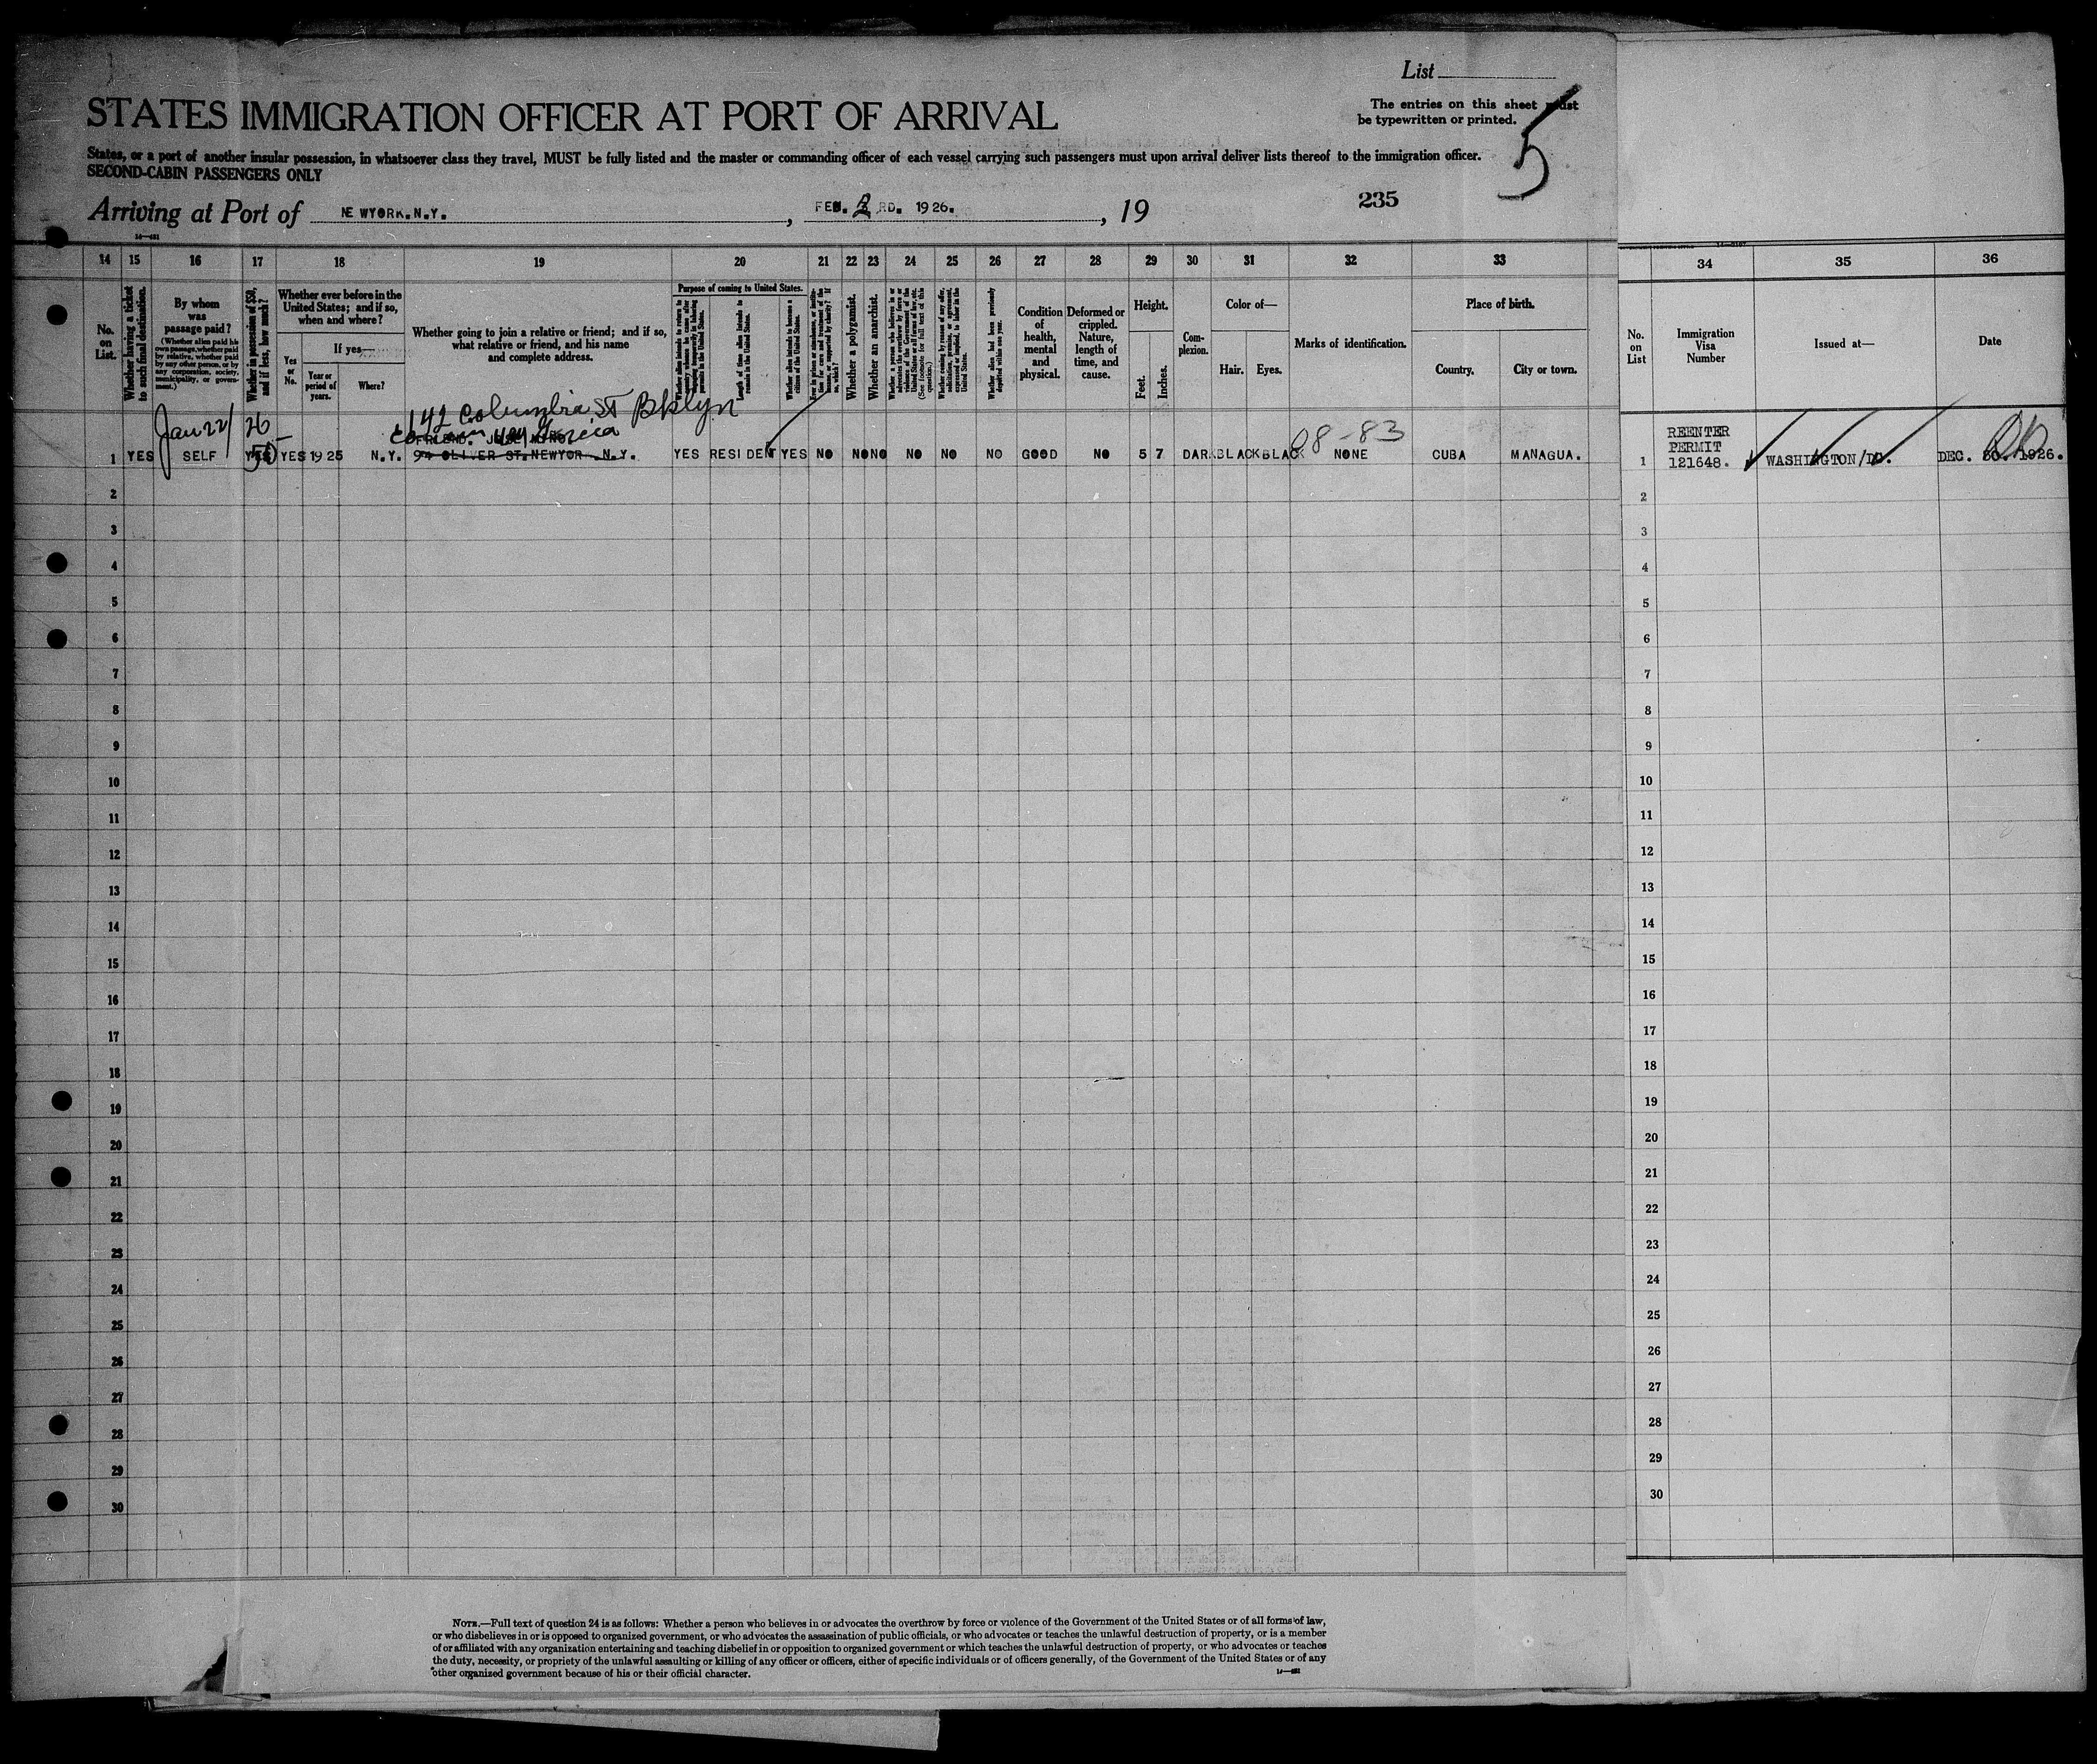 List
STATES IMMIGRATION OFFICER AT PORT OF ARRIVAL
The entries on this sheet must
be typewritten or printed.
5
States, or a port of another insular possession, in whatsoever class they travel, MUST be fully listed and the master or commanding officer of each vessel carrying such passengers must upon arrival deliver lists thereof to the immigration officer.
SECOND-CABIN PASSENGERS ONLY
Arriving at Port of NEWYORK.N.Y. , FEB. 3 RD. 1926. , 19
235
14 15 16 17 18 19 20 21 22 23 24 25 26 27 28 29 30 31 32 33 34 35 36
No. on List.
Whether having a ticket to such final destination.
By whom was passage paid?
(Whether alien paid his own passage, whether paid by relative, whether paid by any other person, or by any corporation, society, municipality, or government.)
Whether in possession of $50, and if less, how much?
Whether ever before in the United States; and if so, when and where?
Yes or No.
If yes—
Year or period of years.
Where?
Whether going to join a relative or friend; and if so, what relative or friend, and his name and complete address.
Purpose of coming to United States.
Length of time alien intends to remain in the United States.
Whether alien intends to become a citizen of the United States.
Whether a polygamist.
Whether an anarchist.
(See footnote for full text of this question.)
Whether alien had been previously deported within one year.
Condition of health, mental and physical.
Deformed or crippled. Nature, length of time, and cause.
Height.
Feet.
Inches.
Complexion.
Color of—
Hair.
Eyes.
Marks of identification.
Place of birth.
Country.
City or town.
No. on List
Immigration Visa Number
Issued at—
Date
142 Columbia ST Bklyn
Jan 22/26
08-83
FRIEND.
1 YES SELF YES 50 YES 1925 N.Y. 94 OLIVER ST. NEWYOR N.Y. YES RESIDENT YES NO NO NO NO NO NO GOOD NO 5 7 DARK BLACK BLACK NONE CUBA MANAGUA.
1 REENTER PERMIT 121648. WASHINGTON/DC. DEC. 30. 1926.
2 2
3 3
4 4
5 5
6 6
7 7
8 8
9 9
10 10
11 11
12 12
13 13
14 14
15 15
16 16
17 17
18 18
19 19
20 20
21 21
22 22
23 23
24 24
25 25
26 26
27 27
28 28
29 29
30 30
NOTE.—Full text of question 24 is as follows: Whether a person who believes in or advocates the overthrow by force or violence of the Government of the United States or of all forms of law,
or who disbelieves in or is opposed to organized government, or who advocates the assassination of public officials, or who advocates or teaches the unlawful destruction of property, or is a member
of or affiliated with any organization entertaining and teaching disbelief in or opposition to organized government or which teaches the unlawful destruction of property, or who advocates or teaches
the duty, necessity, or propriety of the unlawful assaulting or killing of any officer or officers, either of specific individuals or of officers generally, of the Government of the United States or of any
other organized government because of his or their official character.